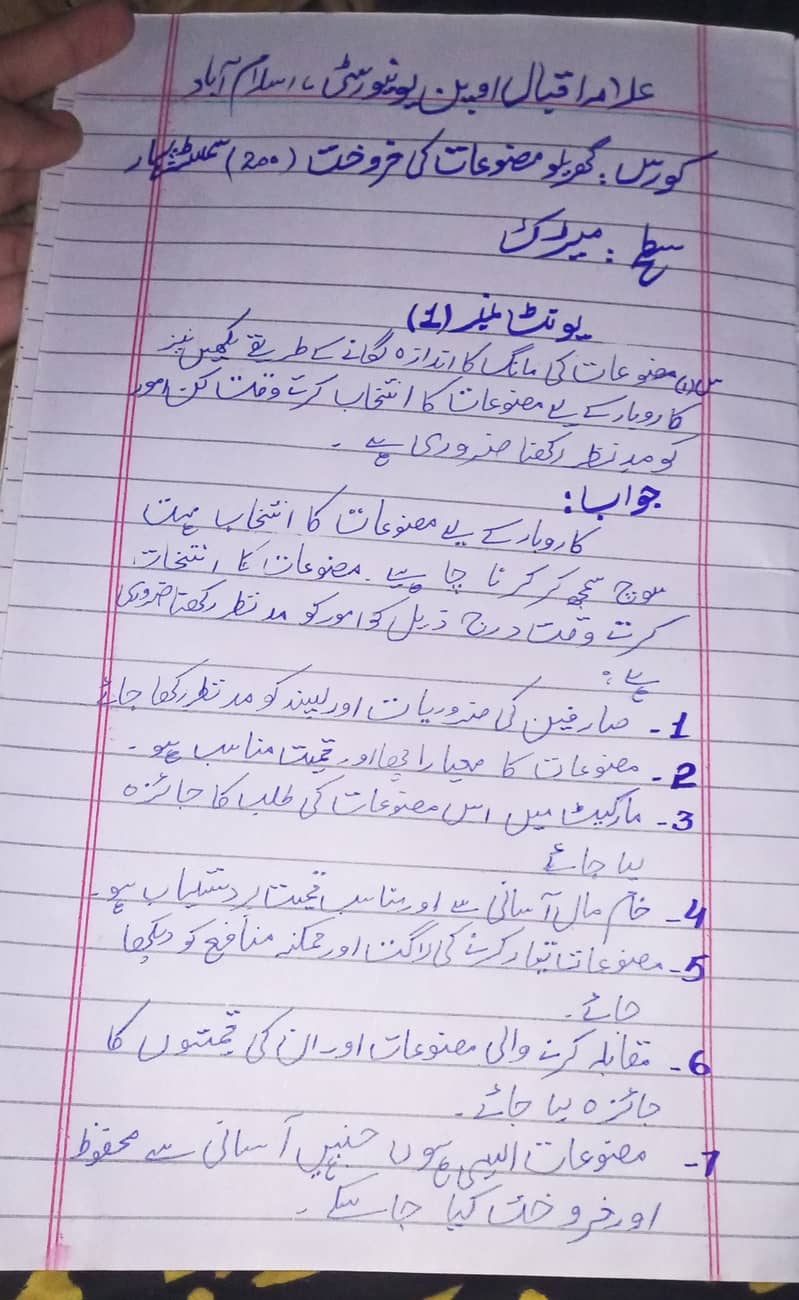 علامہ اقبال اوپن یونیورسٹی، اسلام آباد
کورس: گھریلو مصنوعات کی فروخت (200) سمسٹر: بہار
سطح: میٹرک
یونٹ نمبر (1)
س(1) مصنوعات کی مانگ کا اندازہ لگانے کے طریقے لکھیں نیز
کاروبار کے لیے مصنوعات کا انتخاب کرتے وقت کن امور
کو مدنظر رکھنا ضروری ہے۔
جواب:
کاروبار کے لیے مصنوعات کا انتخاب بہت
سوچ سمجھ کر کرنا چاہیے۔ مصنوعات کا انتخاب
کرتے وقت درج ذیل امور کو مدنظر رکھنا ضروری
ہے:
1- صارفین کی ضروریات اور پسند کو مدنظر رکھا جائے
2- مصنوعات کا معیار اچھا اور قیمت مناسب ہو۔
3- مارکیٹ میں اس مصنوعات کی طلب کا جائزہ
لیا جائے
4- خام مال آسانی سے اور مناسب قیمت پر دستیاب ہو۔
5- مصنوعات تیار کرنے کی لاگت اور ممکنہ منافع کو دیکھا
جائے۔
6- مقابلہ کرنے والی مصنوعات اور ان کی قیمتوں کا
جائزہ لیا جائے۔
7- مصنوعات ایسی ہوں جنہیں آسانی سے محفوظ
اور فروخت کیا جا سکے۔